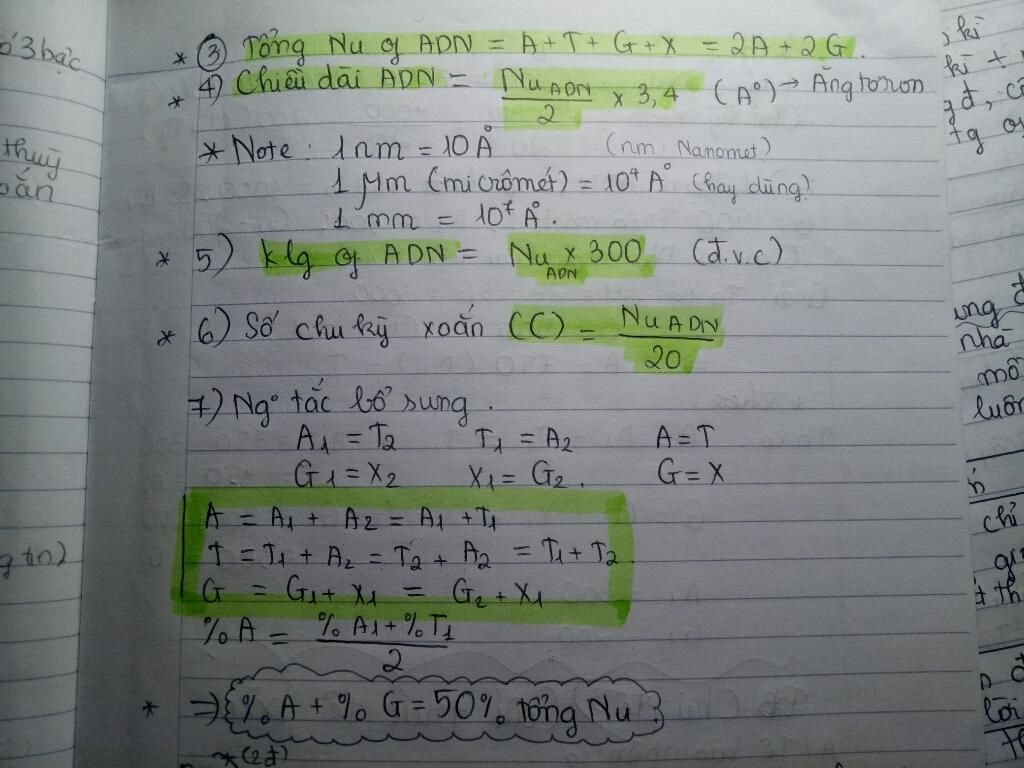 ố 3 bậc
thuỳ
oắn
g tin)
* ③ Tổng Nu of ADN = A + T + G + X = 2A + 2G.
* 4) Chiều dài ADN = Nu ADN / 2 x 3,4 (A°) → Ăngtơron
* Note: 1 nm = 10 Å (nm: Nanomet)
1 µm (micrômét) = 10⁴ A° (hay dùng)
1 mm = 10⁷ Å.
* 5) klg of ADN = Nu ADN x 300 (đ.v.c)
* 6) Số chu kỳ xoắn (C) = Nu ADN / 20
7) Ng° tắc bổ sung.
A₁ = T₂ T₁ = A₂ A = T
G₁ = X₂ X₁ = G₂. G = X
A = A₁ + A₂ = A₁ + T₁
T = T₁ + A₂ = T₂ + A₂ = T₁ + T₂
G = G₁ + X₁ = G₂ + X₁
% A = % A₁ + % T₁ / 2
* ⇒ % A + % G = 50% tổng Nu
* (2đ)
, kì
kì +
g đ, c
tg
ung đ
nhà
mô
luôn
chỉ
lời